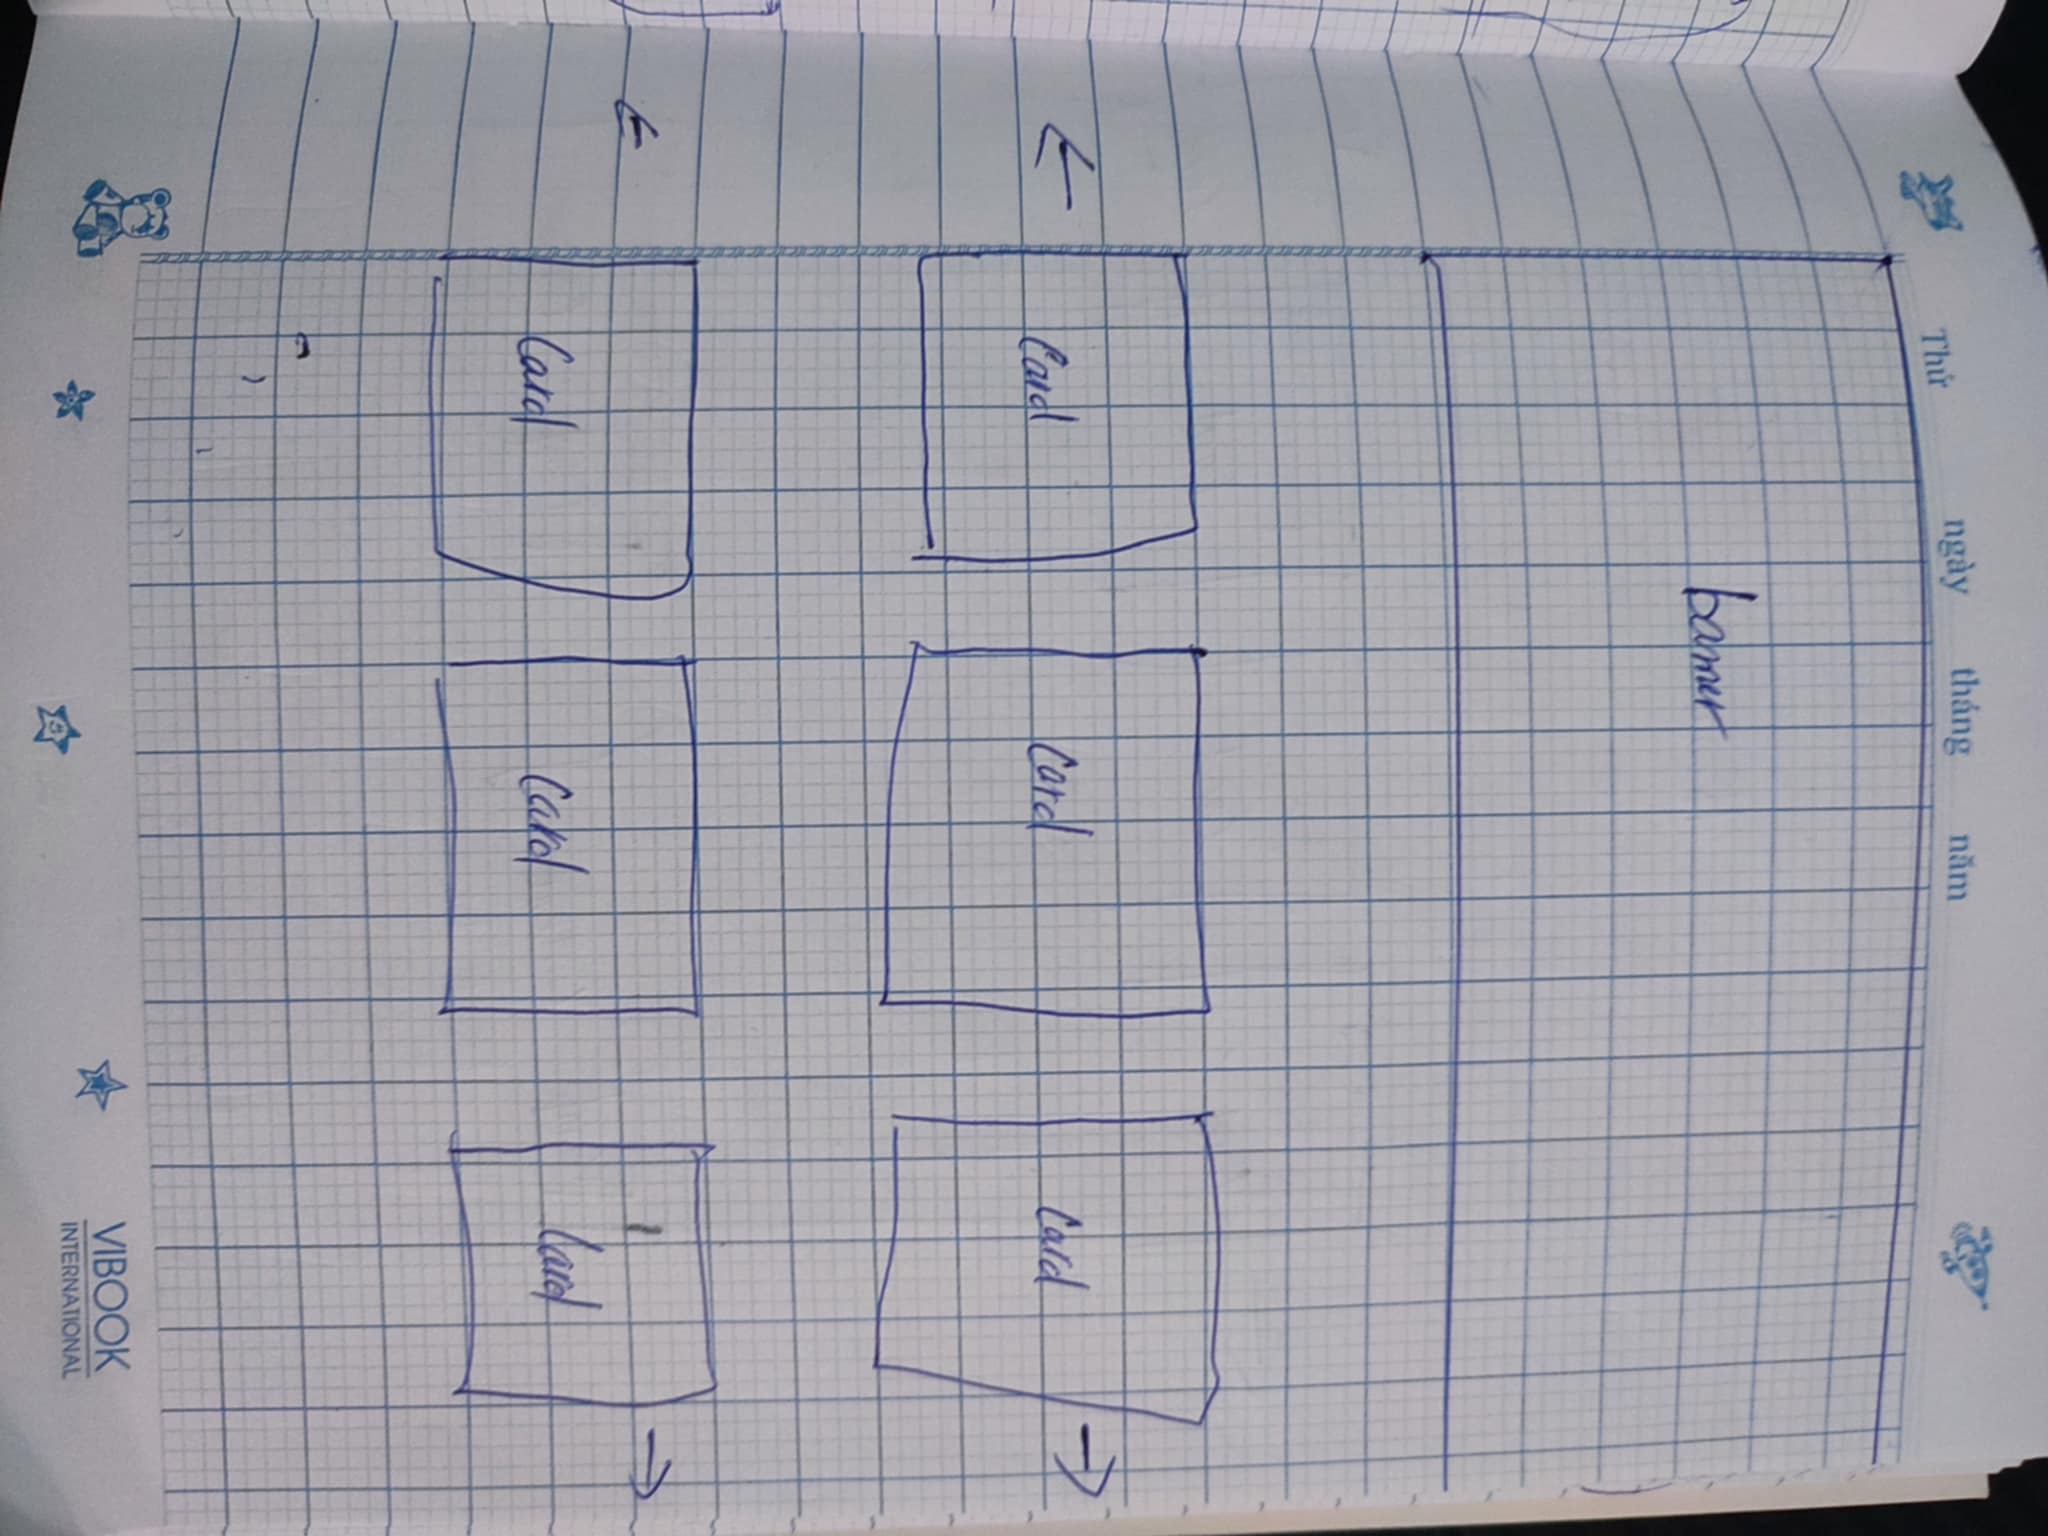 Thứ ngày tháng năm
banner
Card Card Card
Card Card Card
5
VIBOOK
INTERNATIONAL